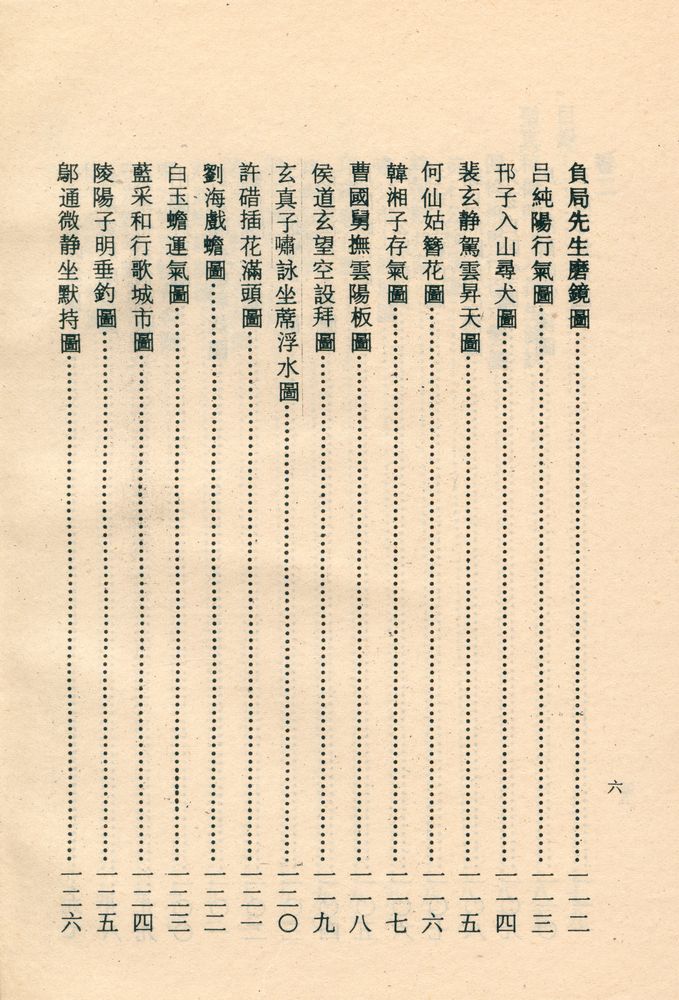 負局先生磨鏡圖……一一二
呂純陽行氣圖……一一三
邗子入山尋犬圖……一一四
裴玄静駕雲昇天圖……一一五
何仙姑簪花圖……一一六
韓湘子存氣圖……一一七
曹國舅撫雲陽板圖……一一八
侯道玄望空設拜圖……一一九
玄真子嘯詠坐蓆浮水圖……一二〇
許碏插花滿頭圖……一二一
劉海戲蟾圖……一二二
白玉蟾運氣圖……一二三
藍采和行歌城市圖……一二四
陵陽子明垂釣圖……一二五
鄔通微静坐默持圖……一二六
六